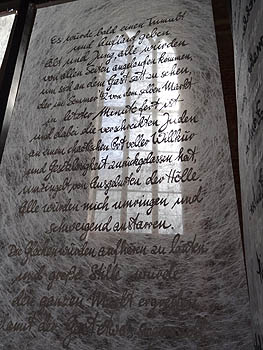 Es würde bald einen Tumult
und Auflauf geben
Alt und Jung, alle würden
von allen Seiten angelaufen kommen,
um sich an dem Gast satt zu sehen,
der im Sommer von dem selben Markt
in letzter Minute fort ist
und dabei die verschreckten Juden
an einem chaotischen Ort voller Willkür
und Gesetzlosigkeit zurückgelassen hat,
umringt von Ausgeburten der Hölle.
Alle würden mich umringen und
schweigend anstarren.
Die Glocken würden aufhören zu läuten
und große Stille würde
den ganzen Markt ergreifen
damit der Gast